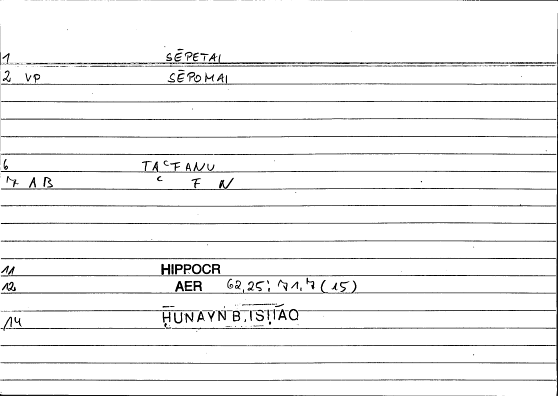 1 SĒPETAI
2 VP SĒPOMAI
6 TAʿFANU
7 AB ʿ F N
11 HIPPOCR
12 AER 62,25; 71,7 (15)
14 ḤUNAYN B. ISḤĀQ